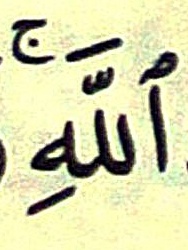 ٱللَّهِ ۚ